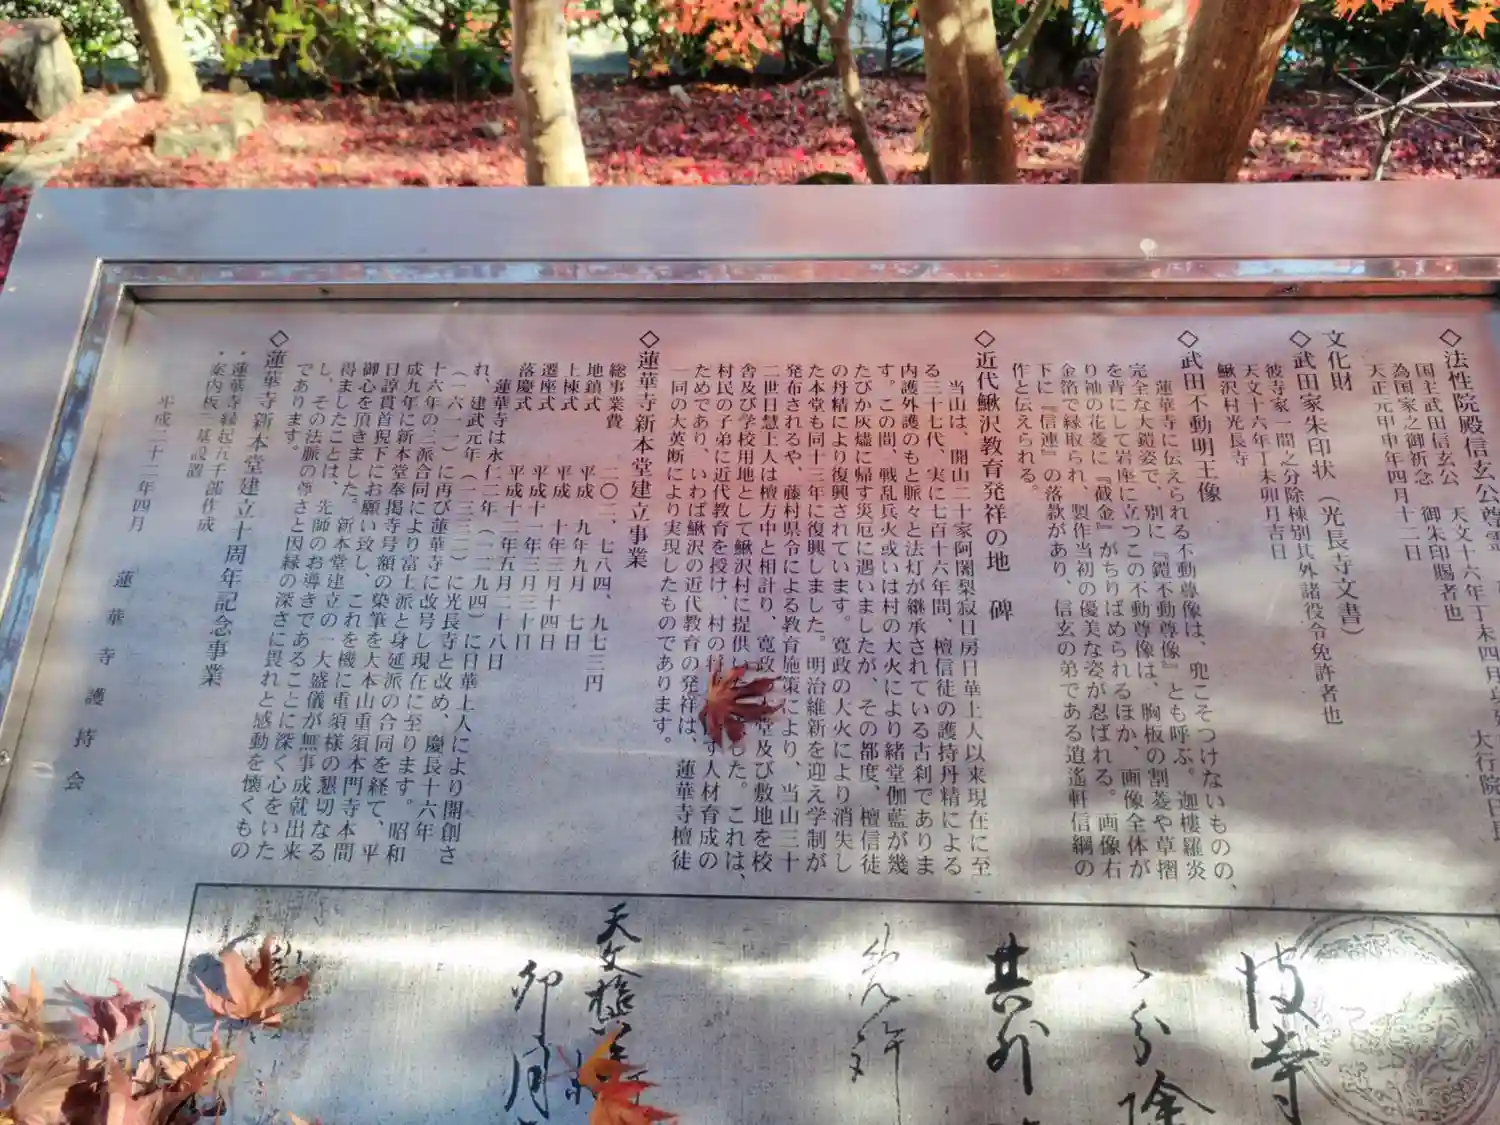 ◇法性院殿信玄公尊霊
国主武田信玄公 天文十六年丁未四月
為国家之御祈念 御朱印賜者也
天正元甲申年四月十二日 大行院日
文化財
◇武田家朱印状(光長寺文書)
彼寺家一間之分除棟別其外諸役令免許者也
天文十六年丁未卯月吉日
鰍沢村光長寺
◇武田不動明王像
蓮華寺に伝えられる不動尊像は、兜こそつけないものの、
完全な大鎧姿で、別に『鎧不動尊像』とも呼ぶ。迦楼羅炎
を背にして岩座に立つこの不動尊像は、胸板の割菱や草摺
り袖の花菱に『截金』がちりばめられるほか、画像全体が
金箔で縁取られ、製作当初の優美な姿が忍ばれる。画像右
下に『信連』の落款があり、信玄の弟である逍遙軒信綱の
作と伝えられる。
◇近代鰍沢教育発祥の地 碑
当山は、開山二十家阿闍梨寂日房日華上人以来現在に至
る三十七代、実に七百十六年間、檀信徒の護持丹精による
内護外護のもと脈々と法灯が継承されている古刹でありま
す。この間、戦乱兵火或いは村の大火により緒堂伽藍が幾
たびか灰燼に帰す災厄に遇いましたが、その都度、檀信徒
の丹精により復興されています。寛政の大火により消失し
た本堂も同十三年に復興しました。明治維新を迎え学制が
発布されるや、藤村県令による教育施策により、当山三十
二世日慧上人は檀方中と相計り、寛政の本堂及び敷地を校
舎及び学校用地として鰍沢村に提供いたしました。これは、
村民の子弟に近代教育を授け、村の将来を託す人材育成の
ためであり、いわば鰍沢の近代教育の発祥は、蓮華寺檀徒
一同の大英断により実現したものであります。
◇蓮華寺新本堂建立事業
総事業費 二〇二、七八四、九七三円
地鎮式 平成 九年九月 七日
上棟式 平成 十年三月十四日
遷座式 平成十一年三月三十日
落慶式 平成十二年五月二十八日
蓮華寺は永仁二年(一二九四)に日華上人により開創さ
れ、建武元年(一三三二)に光長寺と改め、慶長十六年
(一六一一)に再び蓮華寺に改号し現在に至ります。昭和
十六年の三派合同により富士派と身延派の合同を経て、平
成九年に新本堂奉掲寺号額の染筆を大本山重須本門寺本間
日諄貫首猊下にお願い致し、これを機に重須様の懇切なる
御心を頂きました。新本堂建立の一大盛儀が無事成就出来
得ましたことは、先師のお導きであることに深く心をいた
し、その法脈の尊さと因縁の深さに畏れと感動を懐くもの
であります。
◇蓮華寺新本堂建立十周年記念事業
・蓮華寺縁起五千部作成
・案内板一基設置
平成二十二年四月
蓮華寺護持会
彼寺
分除
其外
免許
天文
卯月